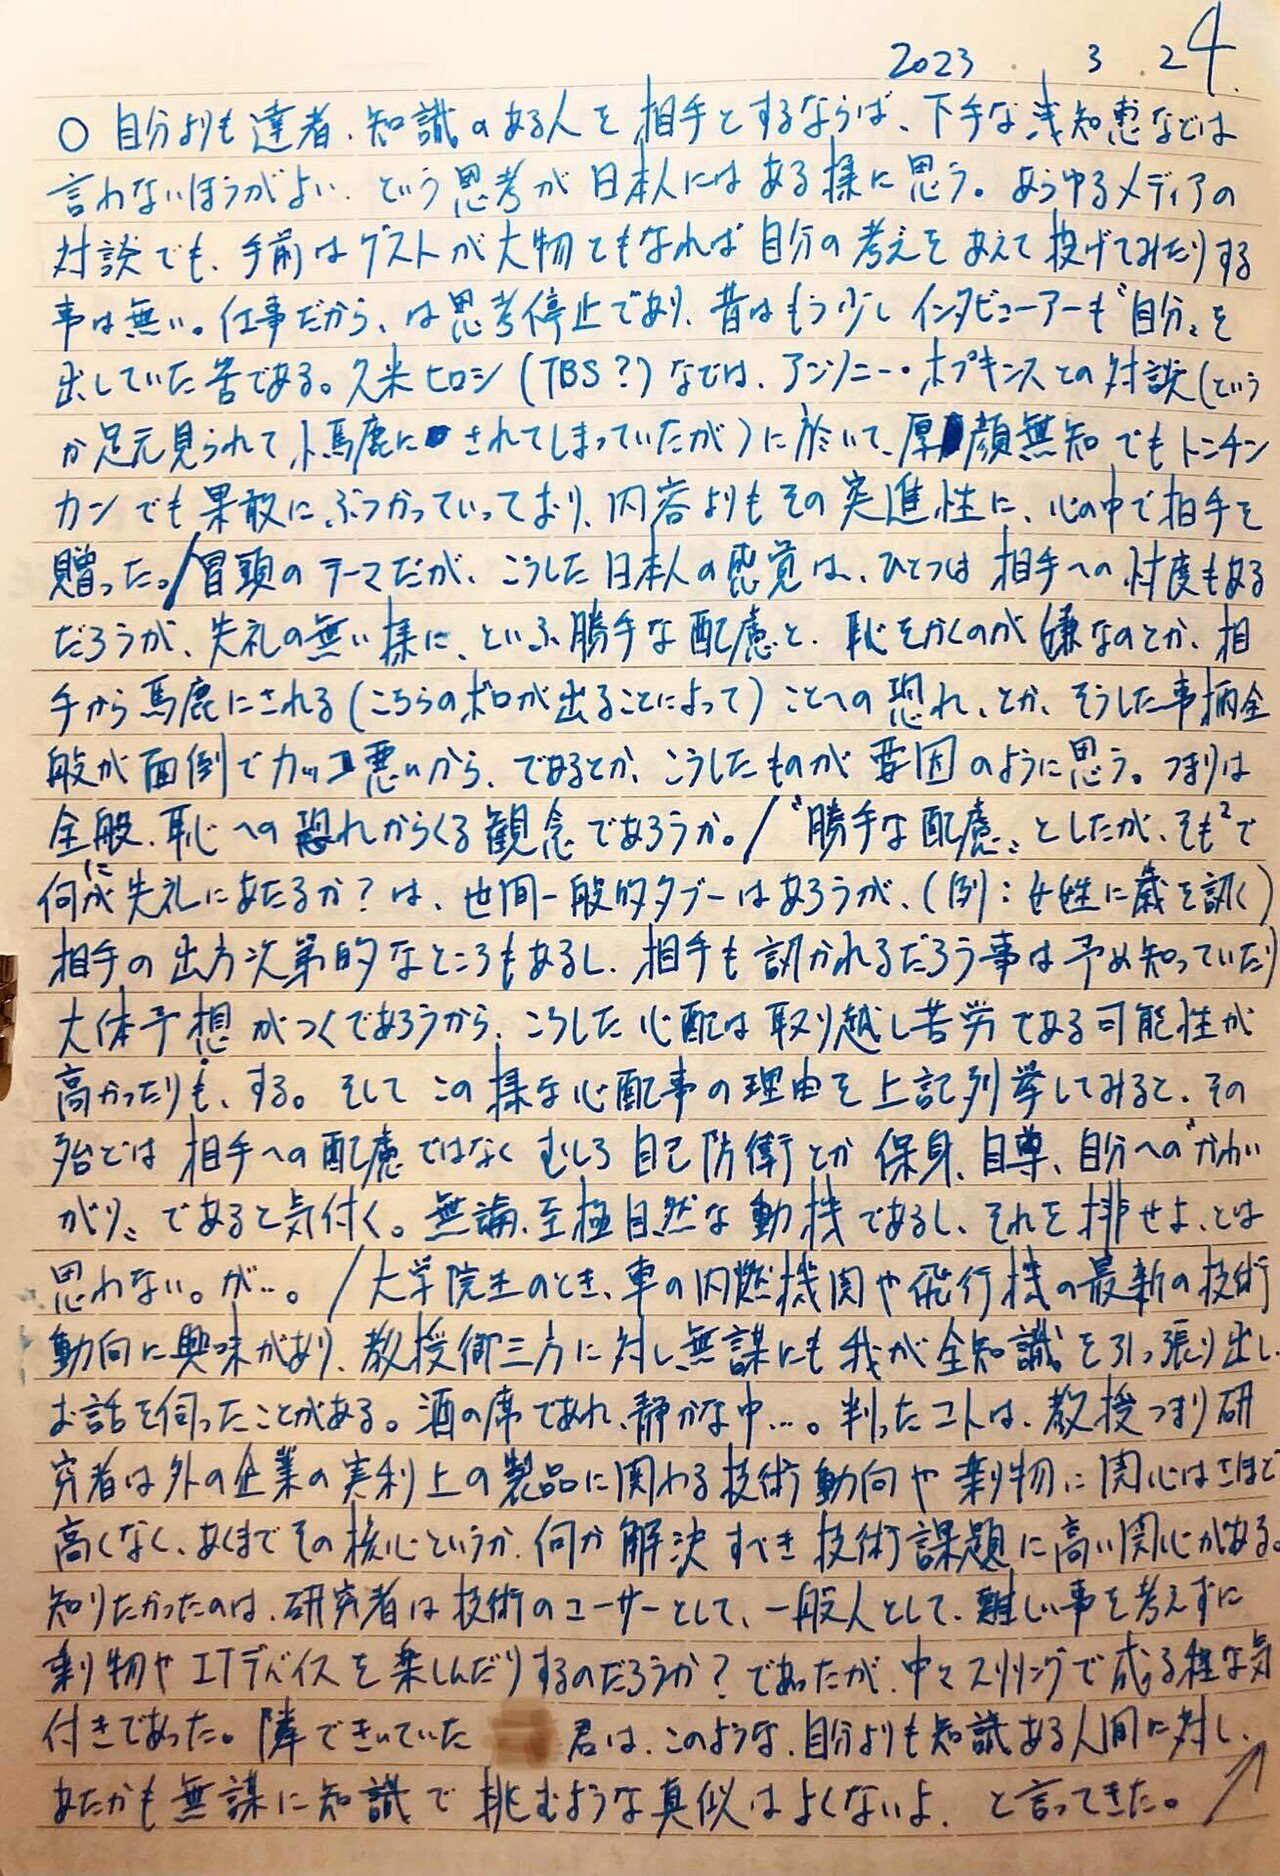 2023.3.24.
○ 自分よりも達者、知識のある人を相手とするならば、下手な浅知恵などは
言わないほうがよい、という思考が日本人にはある様に思う。あらゆるメディアの
対談でも、手前はゲストが大物ともなれば自分の考えをあえて投げてみたりする
事は無い。仕事だから、は思考停止であり、昔はもう少しインタビューアーも〝自分〟を
出していた筈である。久米ヒロシ(TBS?)などは、アンソニー・ホプキンスとの対談(という
か足元見られて小馬鹿にされてしまっていたが)に於いて、厚顔無知でもトンチン
カンでも果敢にぶつかっていっており、内容よりもその突進性に、心の中で拍手を
贈った。/冒頭のテーマだが、こうした日本人の感覚は、ひとつは相手への忖度もある
だろうが、失礼の無い様に、といふ勝手な配慮と、恥をかくのが嫌なのとか、相
手から馬鹿にされる(こちらのボロが出ることによって)ことへの恐れ、とか、そうした事柄全
般が面倒でカッコ悪いから、であるとか、こうしたものが要因のように思う。つまりは
全般、恥への恐れからくる観念であろうか。/〝勝手な配慮〟としたが、そも²で
何が失礼にあたるか?は、世間一般的タブーはあろうが、(例:女性に歳を訊く)
相手の出方次第的なところもあるし、相手も訊かれるだろう事は予め知っていたり
大体予想がつくであろうから、こうした心配は取り越し苦労である可能性が
高かったりも、する。そしてこの様な心配事の理由を上記列挙してみると、その
殆どは相手への配慮ではなくむしろ自己防衛とか保身、自尊、自分への〝かわい
がり〟であると気付く。無論、至極自然な動機であるし、それを排せよ、とは
思わない。が…。/大学院生のとき、車の内燃機関や飛行機の最新の技術
動向に興味があり、教授御三方に対し、無謀にも我が全知識を引っ張り出し、
お話を伺ったことがある。酒の席であれ、静かな中…。判ったコトは、教授つまり研
究者は外の企業の実利上の製品に関わる技術動向や乗り物に関心はさほど
高くなく、あくまでその核心というか、何か解決すべき技術課題に高い関心がある。
知りたかったのは、研究者は技術のユーザーとして、一般人として、難しい事を考えずに
乗り物やITデバイスを楽しんだりするのだろうか?であったが、中々スリリングで成る程な気
付きであった。隣できいていた 君は、このような、自分よりも知識ある人間に対し、
あたかも無謀に知識で挑むような真似はよくないよ、と言ってきた。